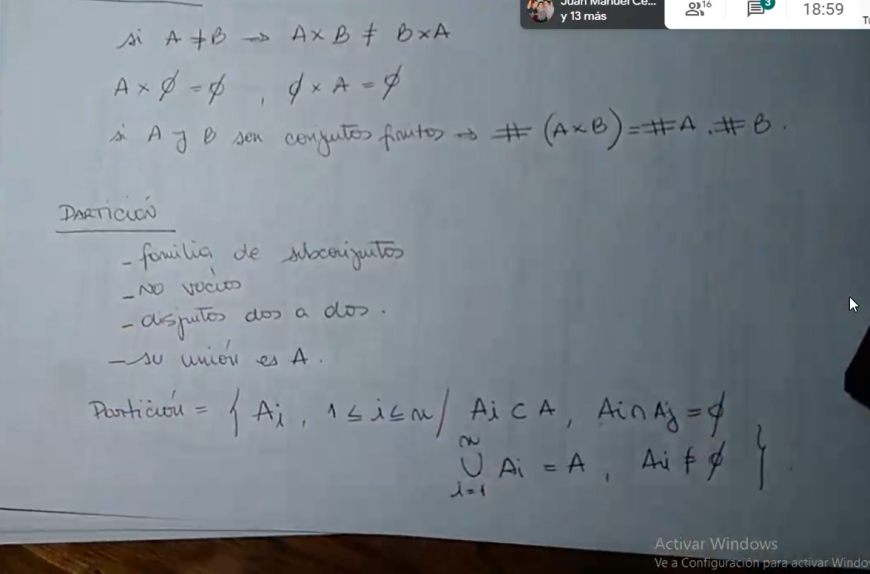 Juan Manuel Ce...
y 13 más
16
3
18:59
si A ≠ B → A x B ≠ B x A
A x ∅ = ∅ , ∅ x A = ∅
si A y B son conjutos finitos → # (A x B) = # A . # B .
PARTICIÓN
- familia de subconjuntos
- NO vacíos
- disjutos dos a dos .
- su unión es A .
Partición = { Ai , 1 ≤ i ≤ n / Ai ⊂ A , Ai ∩ Aj = ∅
n
∪ Ai = A , Ai ≠ ∅ } .
i=1
Activar Windows
Ve a Configuración para activar Windo